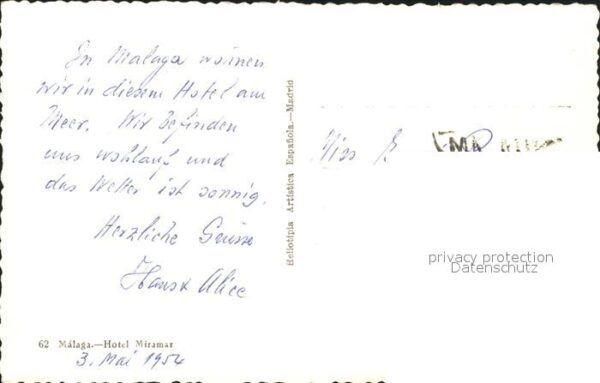 In Malaga wohnen
wir in diesem Hotel am
Meer. Wir befinden
uns wohlauf und
das Wetter ist sonnig.
Herzliche Grüsse
Hans & Alice
62 Málaga.—Hotel Miramar
3. Mai 1954
Heliotipia Artística Española.—Madrid
privacy protection
Datenschutz